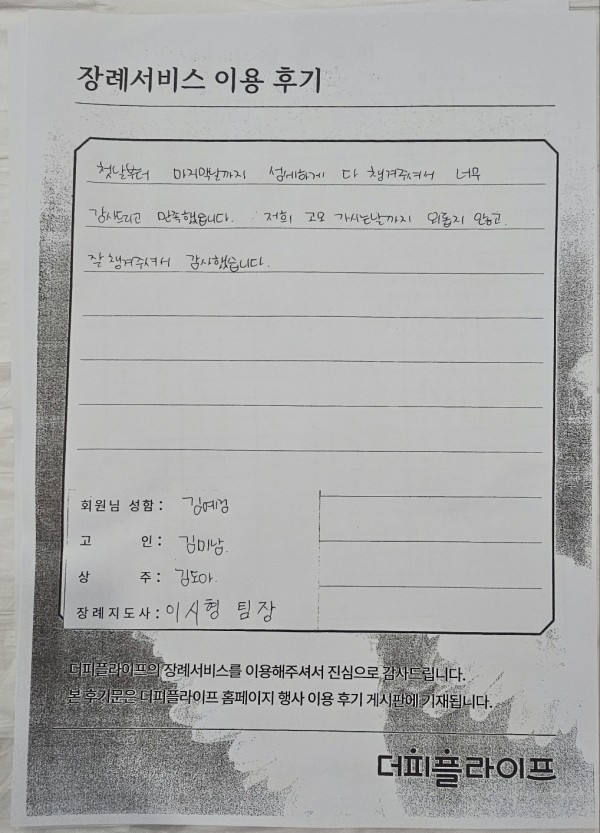 장례서비스 이용 후기
첫날부터 마지막날까지 섬세하게 다 챙겨주셔서 너무
감사드리고 만족했습니다. 저희 고모 가시는날까지 외롭지 않게
잘 챙겨주셔서 감사했습니다.
회원님 성함 : 김예검
고 인 : 김미남.
상 주 : 김도아.
장례지도사 : 이시형 팀장
더피플라이프의 장례서비스를 이용해주셔서 진심으로 감사드립니다.
본 후기문은 더피플라이프 홈페이지 행사 이용 후기 게시판에 기재됩니다.
더피플라이프